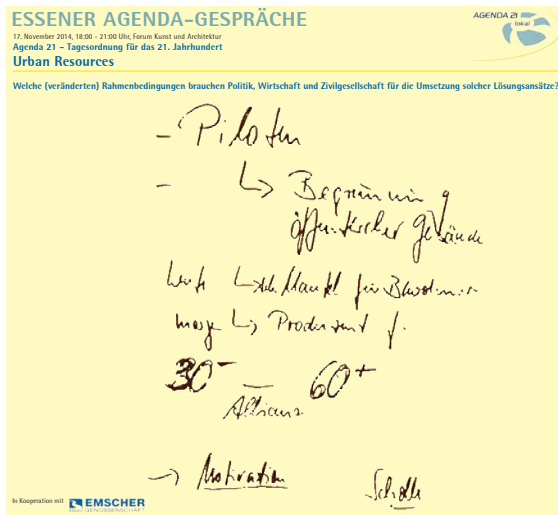 ESSENER AGENDA-GESPRÄCHE
17. November 2014, 18:00 - 21:00 Uhr, Forum Kunst und Architektur
Agenda 21 – Tagesordnung für das 21. Jahrhundert
Urban Resources
AGENDA 21
lokal
Welche (veränderten) Rahmenbedingungen brauchen Politik, Wirtschaft und Zivilgesellschaft für die Umsetzung solcher Lösungsansätze?
- Piloten
- ↳ Begrünung
öffentlicher Gebäude
↳ für
↳ Produzent f.
30- — 60+
Allianz
→ Motivation
Scholle
In Kooperation mit EMSCHER
GENOSSENSCHAFT